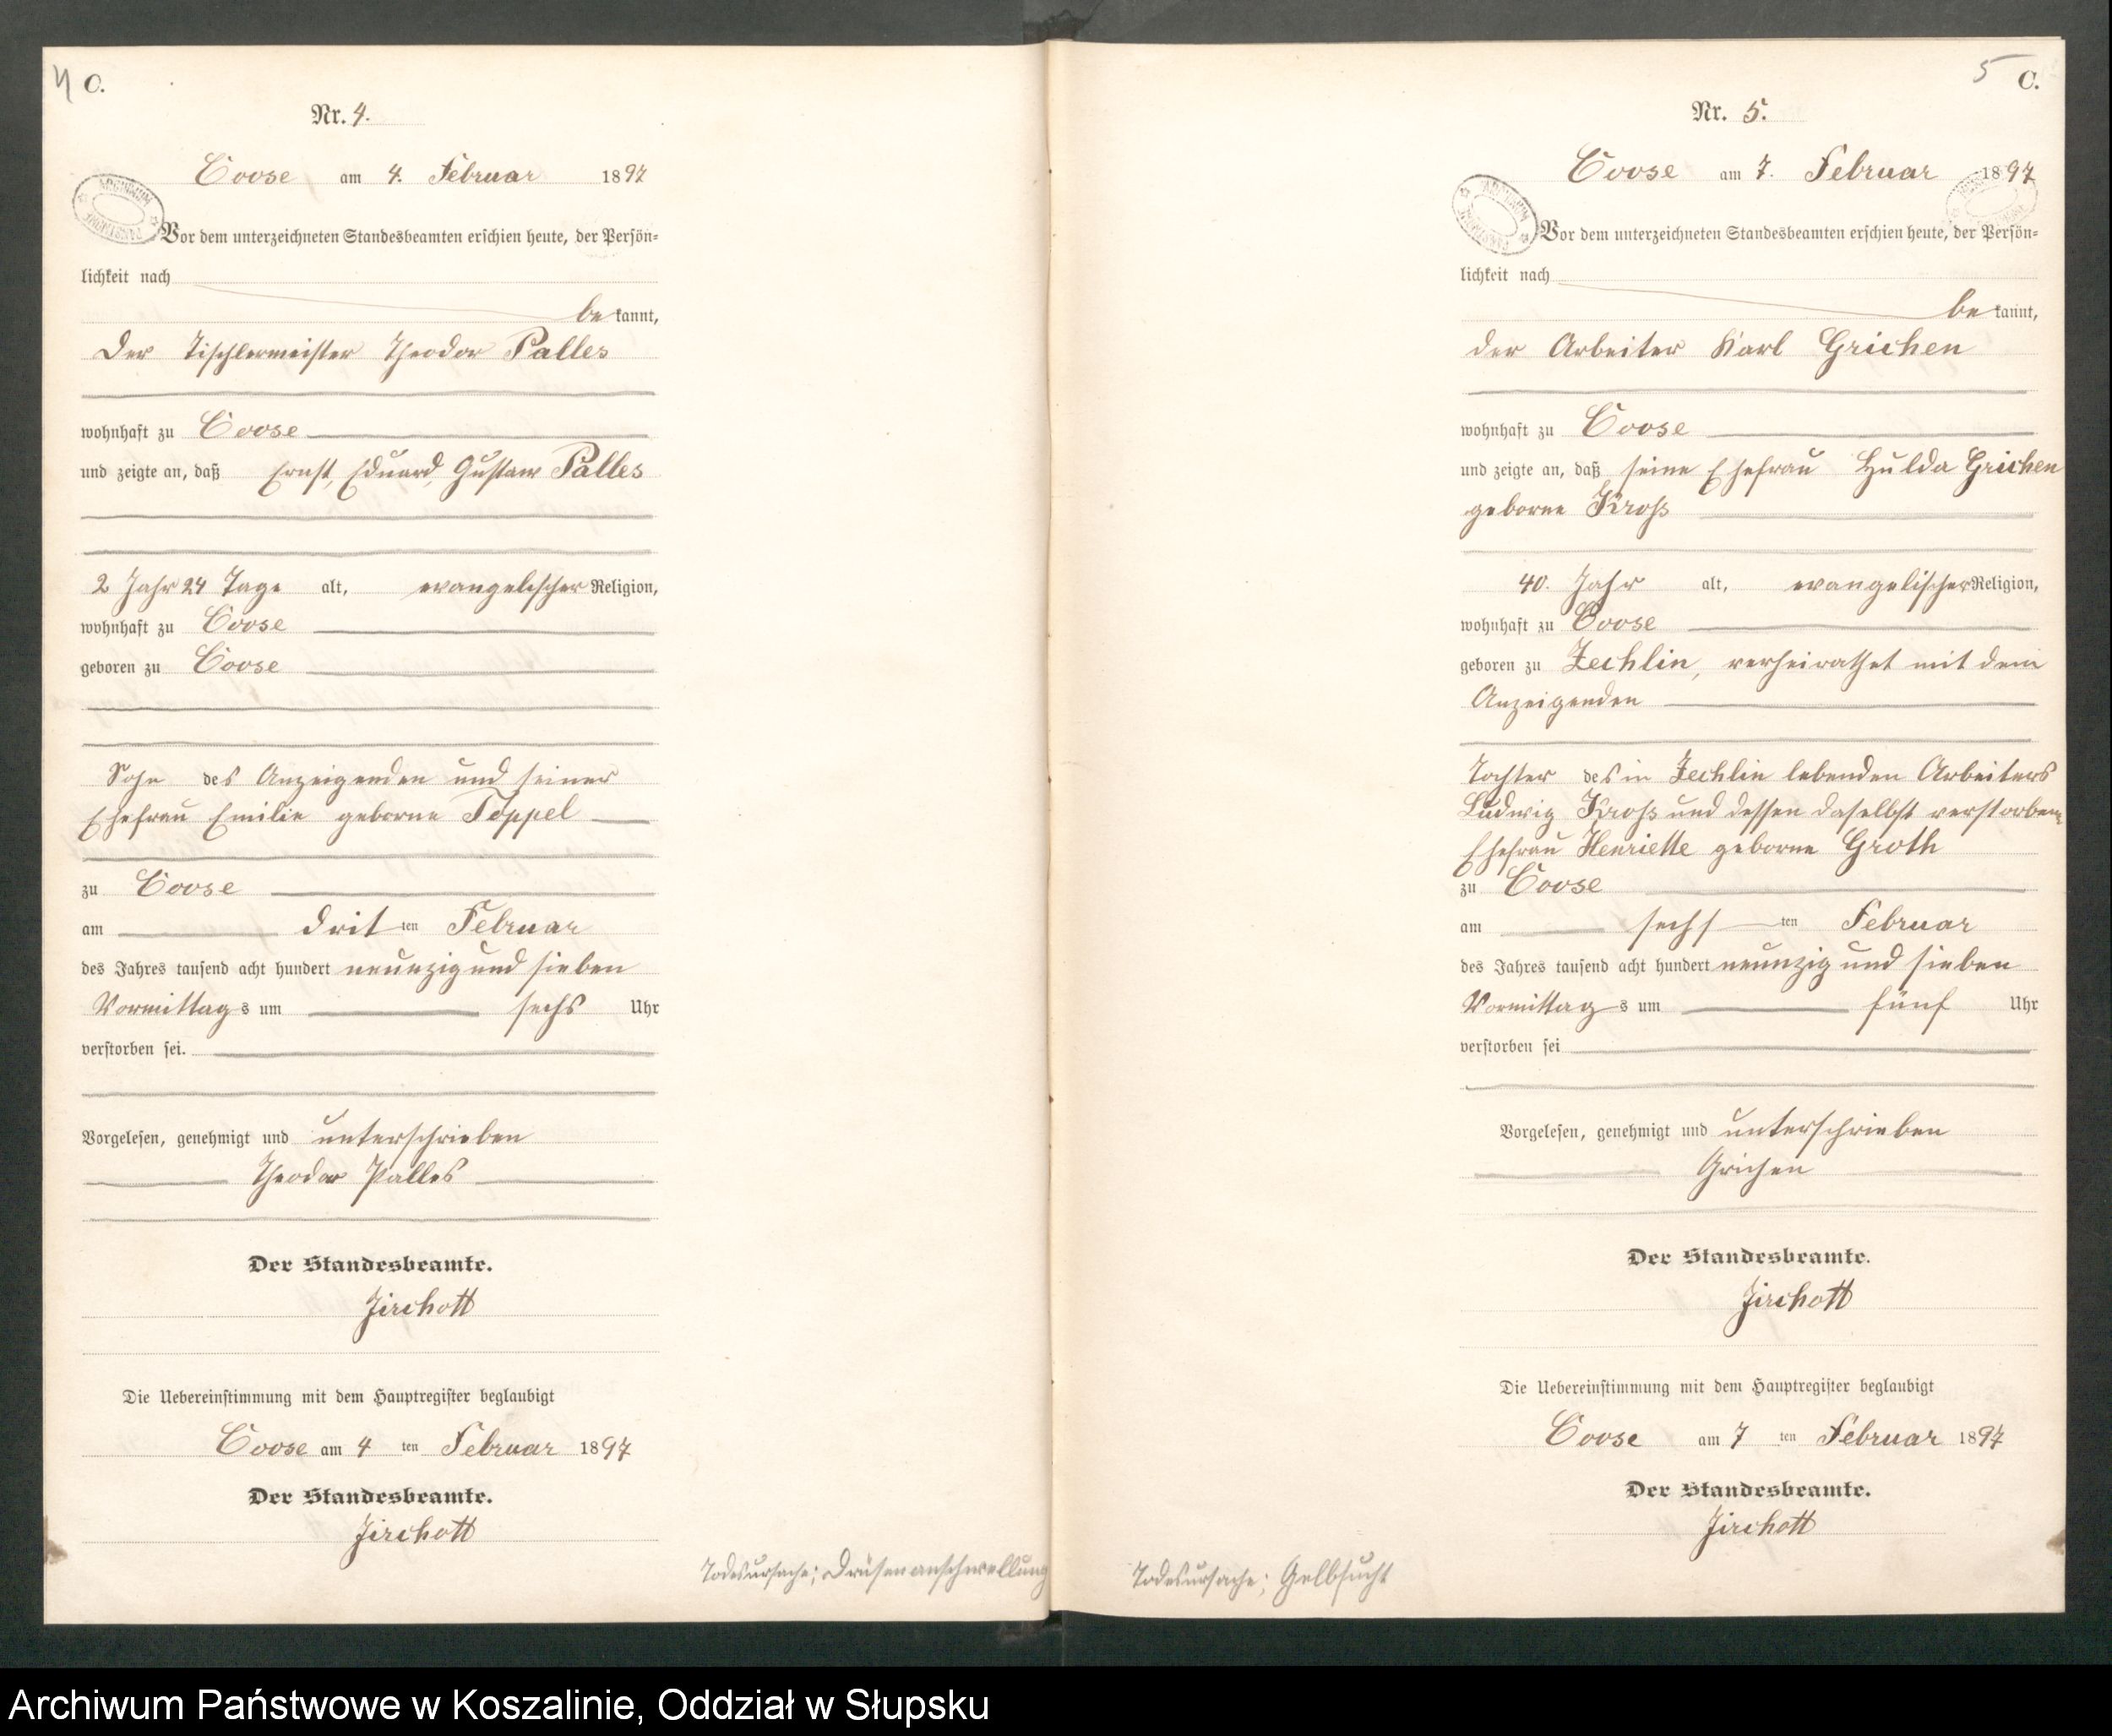 4 C.
Nr. 4.
Coose am 4. Februar 1897
Vor dem unterzeichneten Standesbeamten erschien heute, der Persön-
lichkeit nach
be kannt,
der Tischlermeister Theodor Palles
wohnhaft zu Coose
und zeigte an, daß Ernst, Eduard, Gustav Palles
2 Jahr 24 Tage alt, evangelischer Religion,
wohnhaft zu Coose
geboren zu Coose
Sohn des Anzeigenden und seiner
Ehefrau Emilie geborne Toppel
zu Coose
am drit ten Februar
des Jahres tausend acht hundert neunzig und sieben
Vormittag s um sechs Uhr
verstorben sei.
Vorgelesen, genehmigt und unterschrieben
Theodor Palles
Der Standesbeamte.
Jirchott
Die Uebereinstimmung mit dem Hauptregister beglaubigt
Coose am 4 ten Februar 1897
Der Standesbeamte.
Jirchott
Todesursache; Drüsenanschwellung
5 C.
Nr. 5.
Coose am 7. Februar 1897
Vor dem unterzeichneten Standesbeamten erschien heute, der Persön-
lichkeit nach
be kannt,
der Arbeiter Karl Grichen
wohnhaft zu Coose
und zeigte an, daß seine Ehefrau Hulda Grichen
geborne Kroß
40. Jahr alt, evangelischer Religion,
wohnhaft zu Coose
geboren zu Zechlin, verheirathet mit dem
Anzeigenden
Tochter des in Zechlin lebenden Arbeiters
Ludwig Kroß und dessen daselbst verstorbene
Ehefrau Henriette geborne Groth
zu Coose
am sechs ten Februar
des Jahres tausend acht hundert neunzig und sieben
Vormittag s um fünf Uhr
verstorben sei
Vorgelesen, genehmigt und unterschrieben
Grichen
Der Standesbeamte.
Jirchott
Die Uebereinstimmung mit dem Hauptregister beglaubigt
Coose am 7 ten Februar 1897
Der Standesbeamte.
Jirchott
Todesursache; Gelbsucht
Archiwum Państwowe w Koszalinie, Oddział w Słupsku